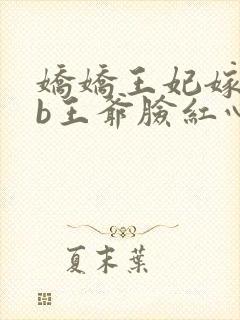 嬌嬌王妃嫁
b王爺臉紅心
夏末葉